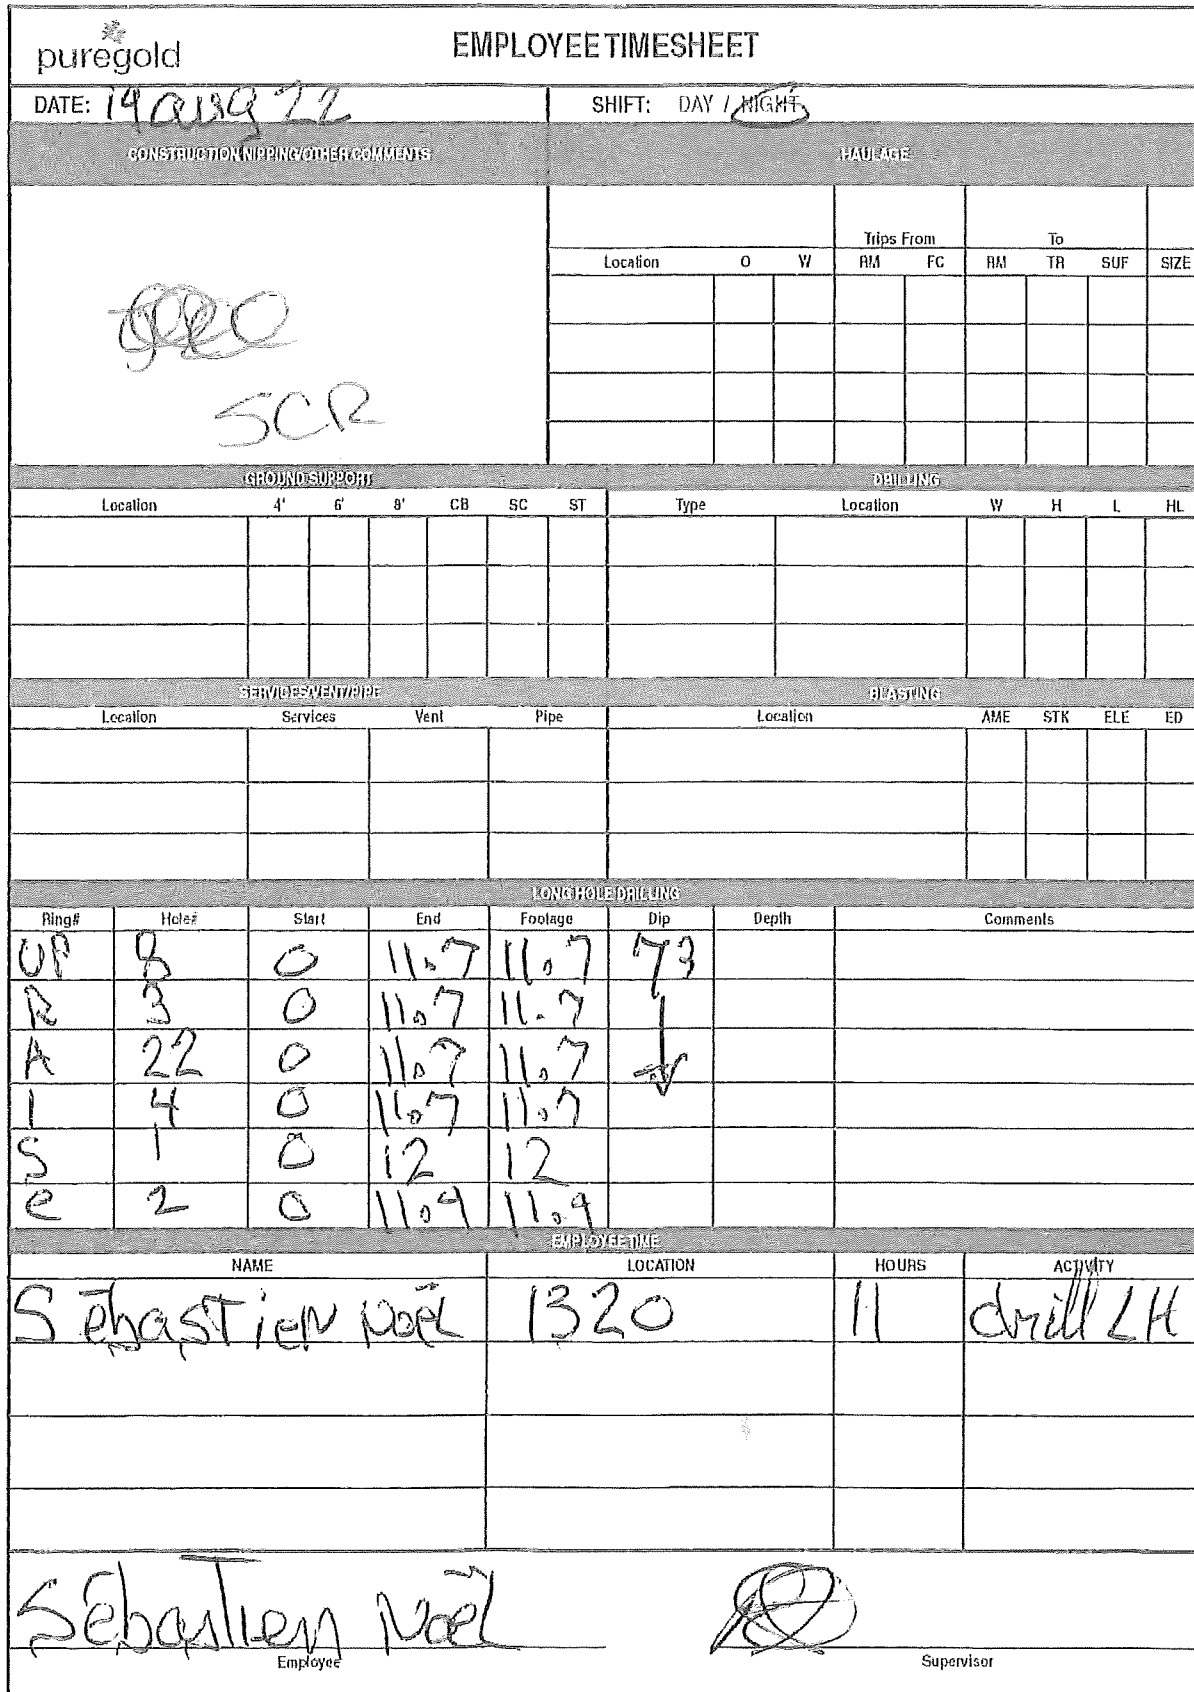 puregold
EMPLOYEE TIMESHEET
DATE: 14 aug 22 SHIFT: DAY / NIGHT
CONSTRUCTION/NIPPING/OTHER COMMENTS HAULAGE
Trips From To
Location O W RM FC RM TR SUF SIZE
SCR
GROUND SUPPORT DRILLING
Location 4' 6' 8' CB SC ST Type Location W H L HL
SERVICES/VENT/PIPE BLASTING
Location Services Vent Pipe Location AME STK ELE ED
LONG HOLE DRILLING
Ring# Hole# Start End Footage Dip Depth Comments
UP 8 0 11.7 11.7 73
R 3 0 11.7 11.7
A 22 0 11.7 11.7
I 4 0 11.7 11.7
S 1 0 12 12
e 2 0 11.9 11.9
EMPLOYEE TIME
NAME LOCATION HOURS ACTIVITY
Sébastien Noël 1320 11 drill LH
Sébastien Noël
Employee Supervisor